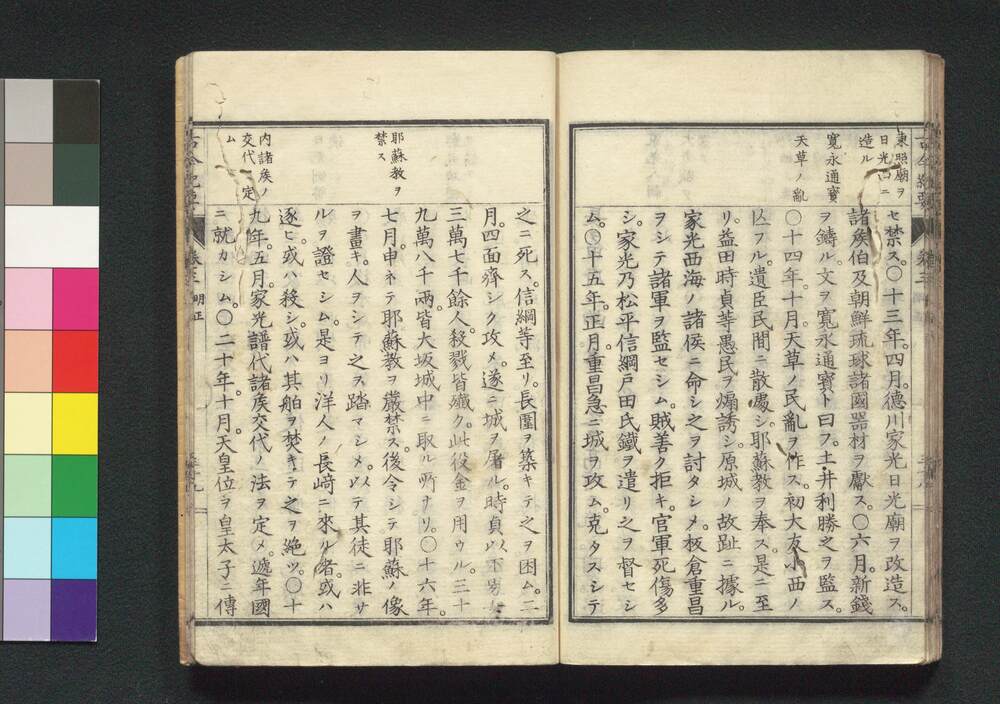 東照廟ヲ
日光山ニ
造ル
寛永通寳
天草ノ亂
セ禁ス。〇十三年。四月。德川家光日光廟ヲ改造ス。
諸矦伯及朝鮮琉球諸國器材ヲ獻ス。〇六月。新錢
ヲ鑄ル文ヲ寛永通寳ト曰フ。土井利勝之ヲ監ス。
〇十四年。十月。天草ノ民亂ヲ作ス。初大友小西ノ
亾フル。遺臣民間ニ散處シ。耶蘇教ヲ奉ス。是ニ至
リ。益田時貞等愚民ヲ煽誘シ。原城ノ故趾ニ據ル。
家光西海ノ諸侯ニ命シ之ヲ討タシメ。板倉重昌
ヲシテ諸軍ヲ監セシム。賊善ク拒キ。官軍死傷多
シ。家光乃松平信綱戸田氏鐵ヲ遣リ之ヲ督セシ
ム。〇十五年。正月。重昌急ニ城ヲ攻ム。克タスシテ
耶蘇教ヲ
禁ス
内諸矦ノ
交代ヲ定
ム
之ニ死ス。信綱等至リ。長圍ヲ築キテ之ヲ困ム。二
月。四面齊シク攻メ。遂ニ城ヲ屠ル。時貞以下男女
三萬七千餘人。殺戮皆殲ク。此役金ヲ用ウル。三十
九萬八千兩。皆大坂城中ニ取ル所ナリ。〇十六年。
七月。申ネテ耶蘇教ヲ嚴禁ス。後令シテ耶蘇ノ像
ヲ畫キ。人ヲシテ之ヲ踏マシメ。以テ其徒ニ非サ
ルヲ證セシム。是ヨリ洋人ノ長﨑ニ來ル者。或ハ
逐ヒ或ハ殺シ。或ハ其舶ヲ焚キテ之ヲ絶ツ。〇十
九年。五月。家光譜代諸矦交代ノ法ヲ定メ。遞年國
ニ就カシム。〇二十年。十月。天皇位ヲ皇太子ニ傳
明正